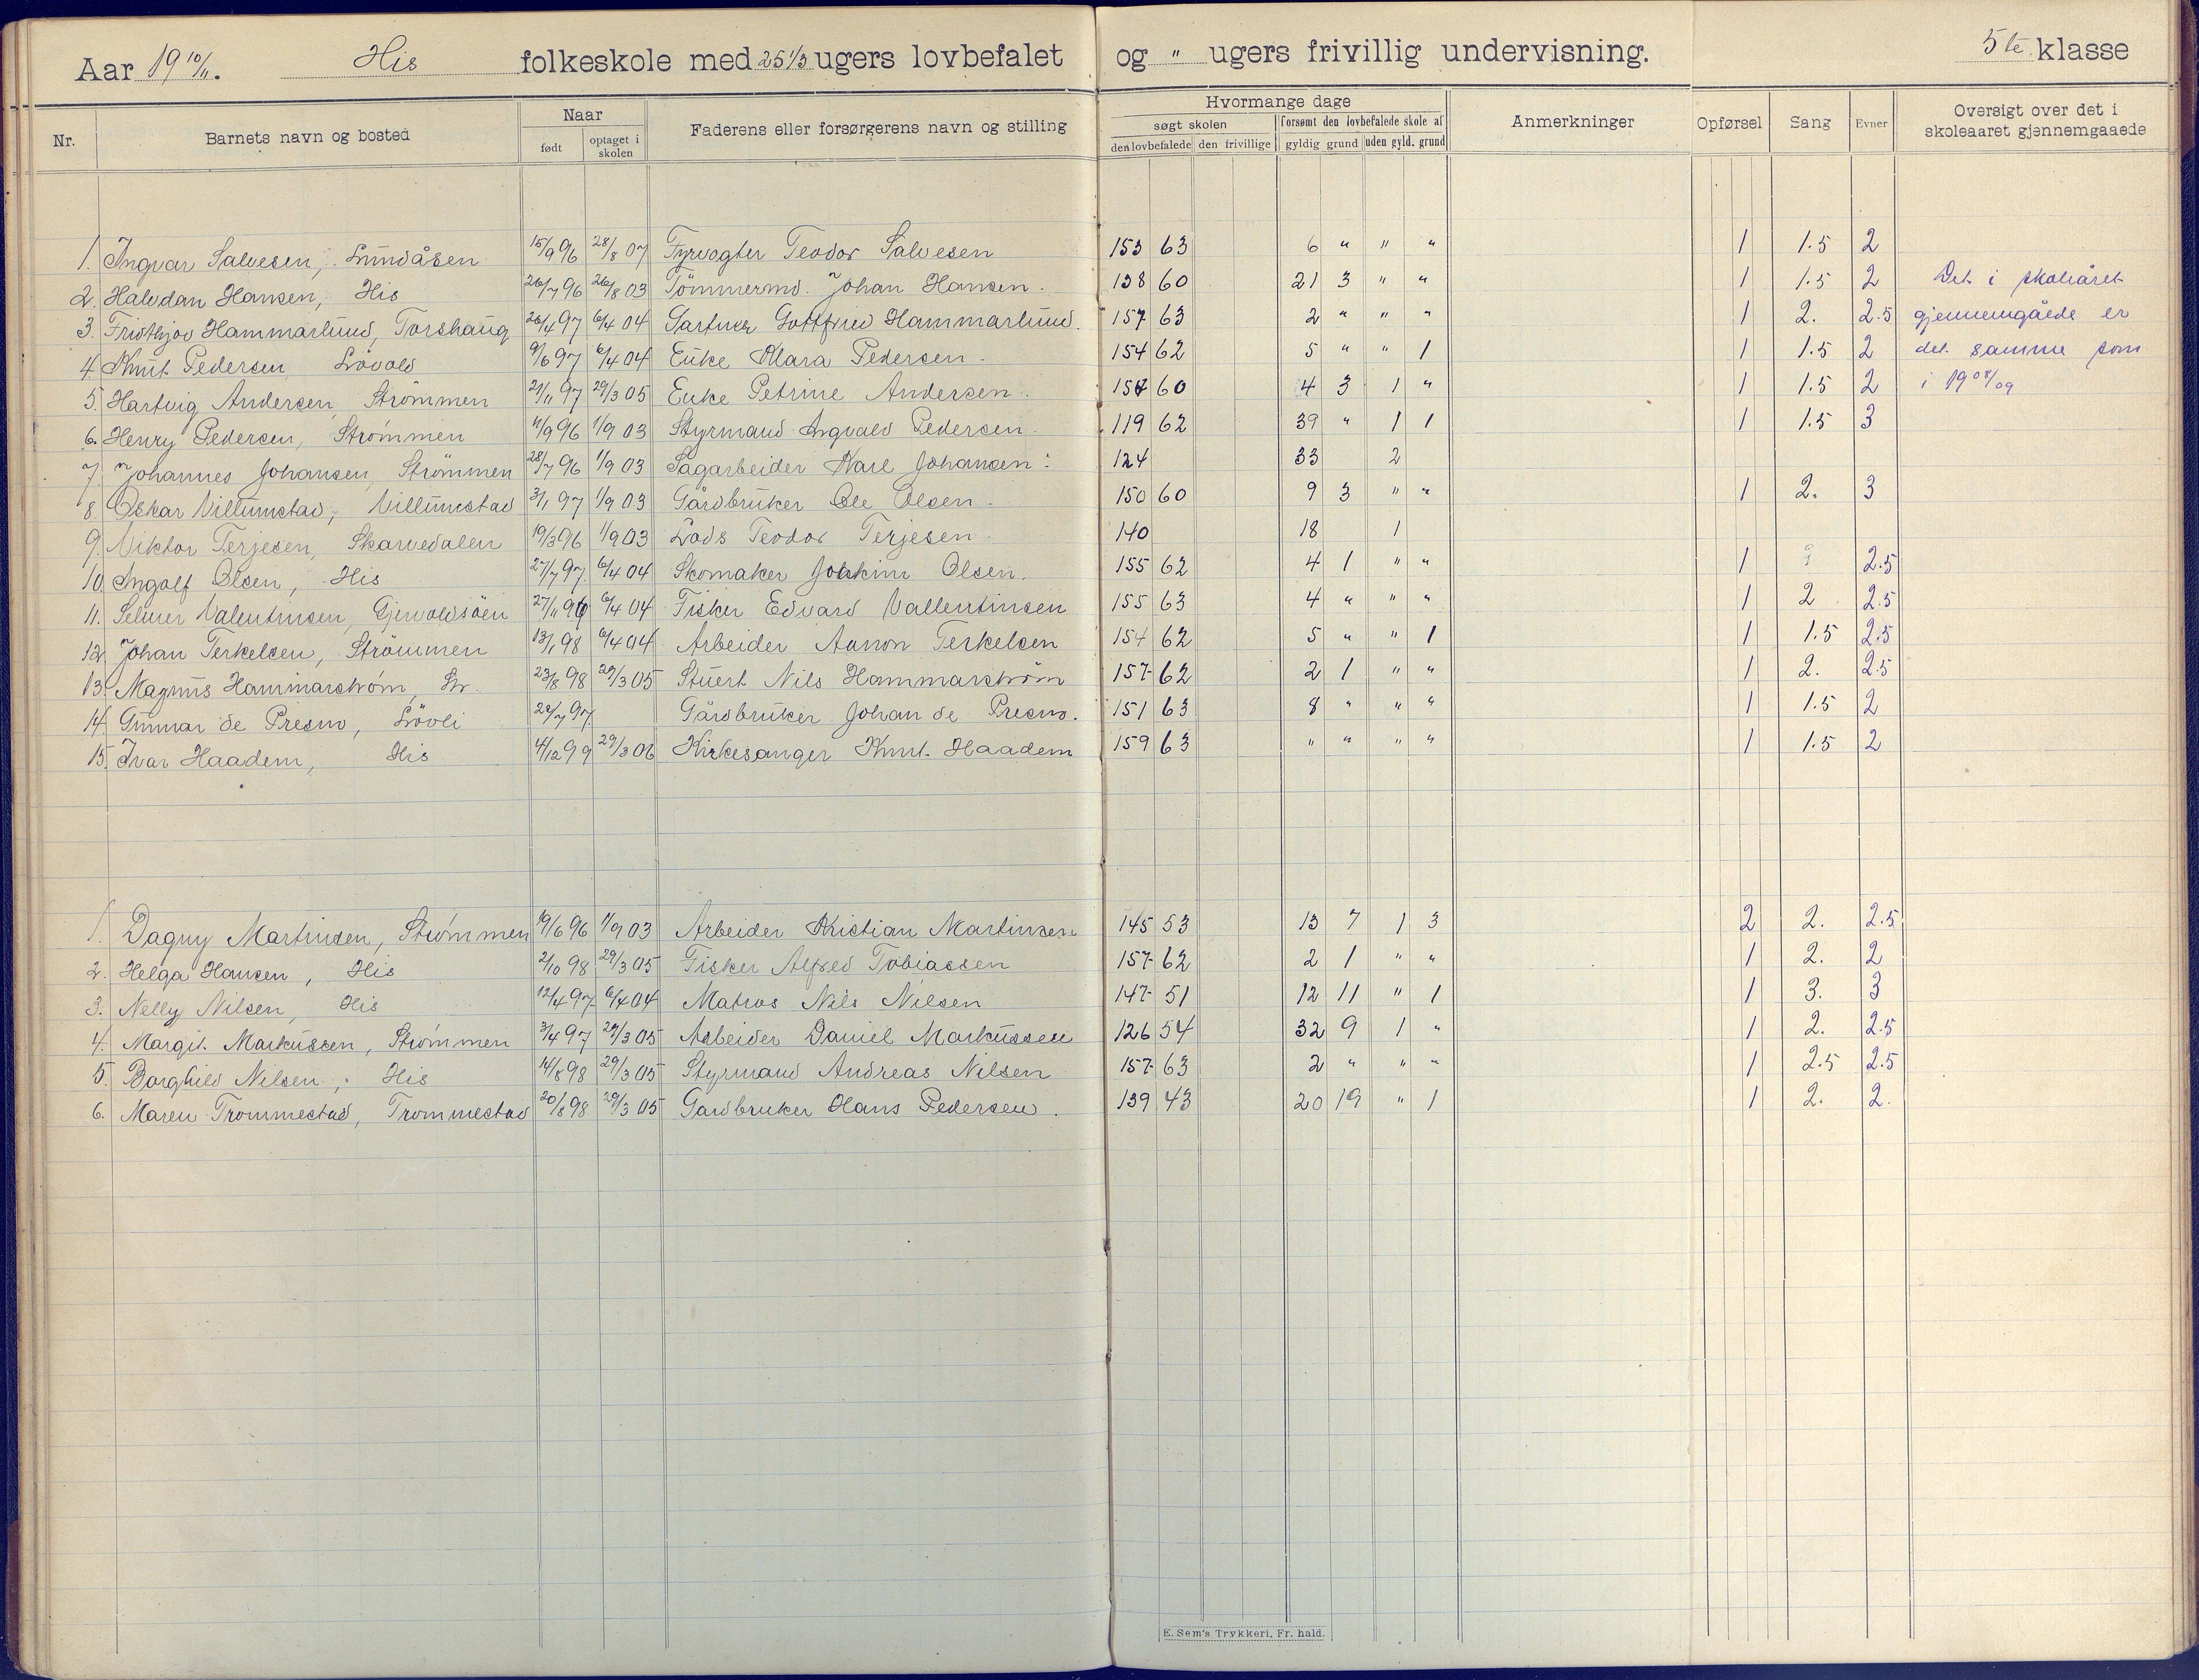 Aar 19 10/11. His folkeskole med 25 1/3 ugers lovbefalet og " ugers frivillig undervisning. 5te klasse
Nr. Barnets navn og bosted Naar Faderens eller forsørgerens navn og stilling Hvormange dage Anmerkninger Opførsel Sang Evner Oversigt over det i skoleaaret gjennemgaaede
født optaget i skolen søgt skolen forsømt den lovbefalede skole af
den lovbefalede den frivillige gyldig grund uden gyld. grund
1. Ingvar Salvesen, Lundåsen 15/9 96 28/8 07 Fyrvogter Teodor Salvesen 153 63 6 " " " 1 1.5 2
2. Halvdan Hansen, His 26/7 96 26/8 03 Tömmermd. Johan Hansen. 138 60 21 3 " " 1 1.5 2 Det i skoleåret
3. Fridthjov Hammarlund, Torshaug 26/4 97 6/4 04 Gottfred Hammarlund. 157 63 2 " " " 1 2. 2.5 gjennemgåede er
4. Knut Pedersen Lövold 9/6 97 6/4 04 Enke Klara Pedersen. 154 62 5 " " 1 1 1.5 2 det samme som
5. Hartvig Andersen, Strömmen 21/11 97 29/3 05 Enke Petrine Andersen. 154 60 4 3 1 " 1 1.5 2 i 19 08/09
6. Henry Pedersen, Strömmen 11/9 96 1/9 03 Styrmand Ingvald Pedersen 119 62 39 " 1 1 1 1.5 3
7. Johannes Johansen, Strömmen 28/7 96 1/9 03 Sagarbeider Karl Johansen. 124 33 2
8. Oskar Villumstad, Villumstad 3/1 97 1/9 03 Gårdbruker Ole Olsen. 150 60 9 3 " " 1 2. 3
9. Viktor Terjesen, Skarvedalen 19/3 96 1/9 03 Lods Teodor Terjesen. 140 18 1
10. Ingolf Olsen, His 27/7 97. 6/4 04 Skomaker Joakim Olsen. 155 62 4 1 " " 1 2.5
11. Selmer Valentinsen, Gjervoldsöen 27/11 96 6/4 04 Fisker Edvard Vallentinsen 155 63 4 " " " 1 2 2.5
12. Johan Terkelsen, Strömmen 13/1 98 6/4 04 Arbeider Aanon Terkelsen 154 62 5 " " 1 1 1.5 2.5
13. Magnus Hammarström, Str. 23/8 98 29/3 05 Stuert Nils Hammarström 157 62 2 1 " " 1 2. 2.5
14. Gunnar de Presno, Lövli 22/7 97. Gårdbruker Johan de Presno. 151 63 8 " " " 1 1.5 2
15. Ivar Haadem, His 4/12 99 29/3 06 Kirkesanger Knut Haadem 159 63 " " " " 1 1.5 2
1. Dagny Martinsen, Strömmen 19/6 96 1/9 03 Arbeider Kristian Martinsen 145 53 13 7 1 3 2 2. 2.5
2. Helga Hansen, His 2/10 98 29/3 05 Fisker Alfred Tobiassen 157 62 2 1 " " 1 2. 2
3. Nelly Nilsen, His 12/4 97 6/4 04 Matros Nils Nilsen 147 51 12 11 " 1 1 3. 3
4. Margit Markussen, Strömmen 3/4 97 29/3 05 Arbeider Daniel Markussen 126 54 32 9 1 " 1 2. 2.5
5. Borghild Nilsen, His 14/8 98 29/3 05 Styrmand Andreas Nilsen 157 63 2 " " " 1 2.5 2.5
6. Maren Trommestad, Trommestad 20/8 98 29/3 05 Gardbruker Hans Pedersen. 139 43 20 19 " 1 1 2. 2.
E. Sem's Trykkeri, Fr. hald.